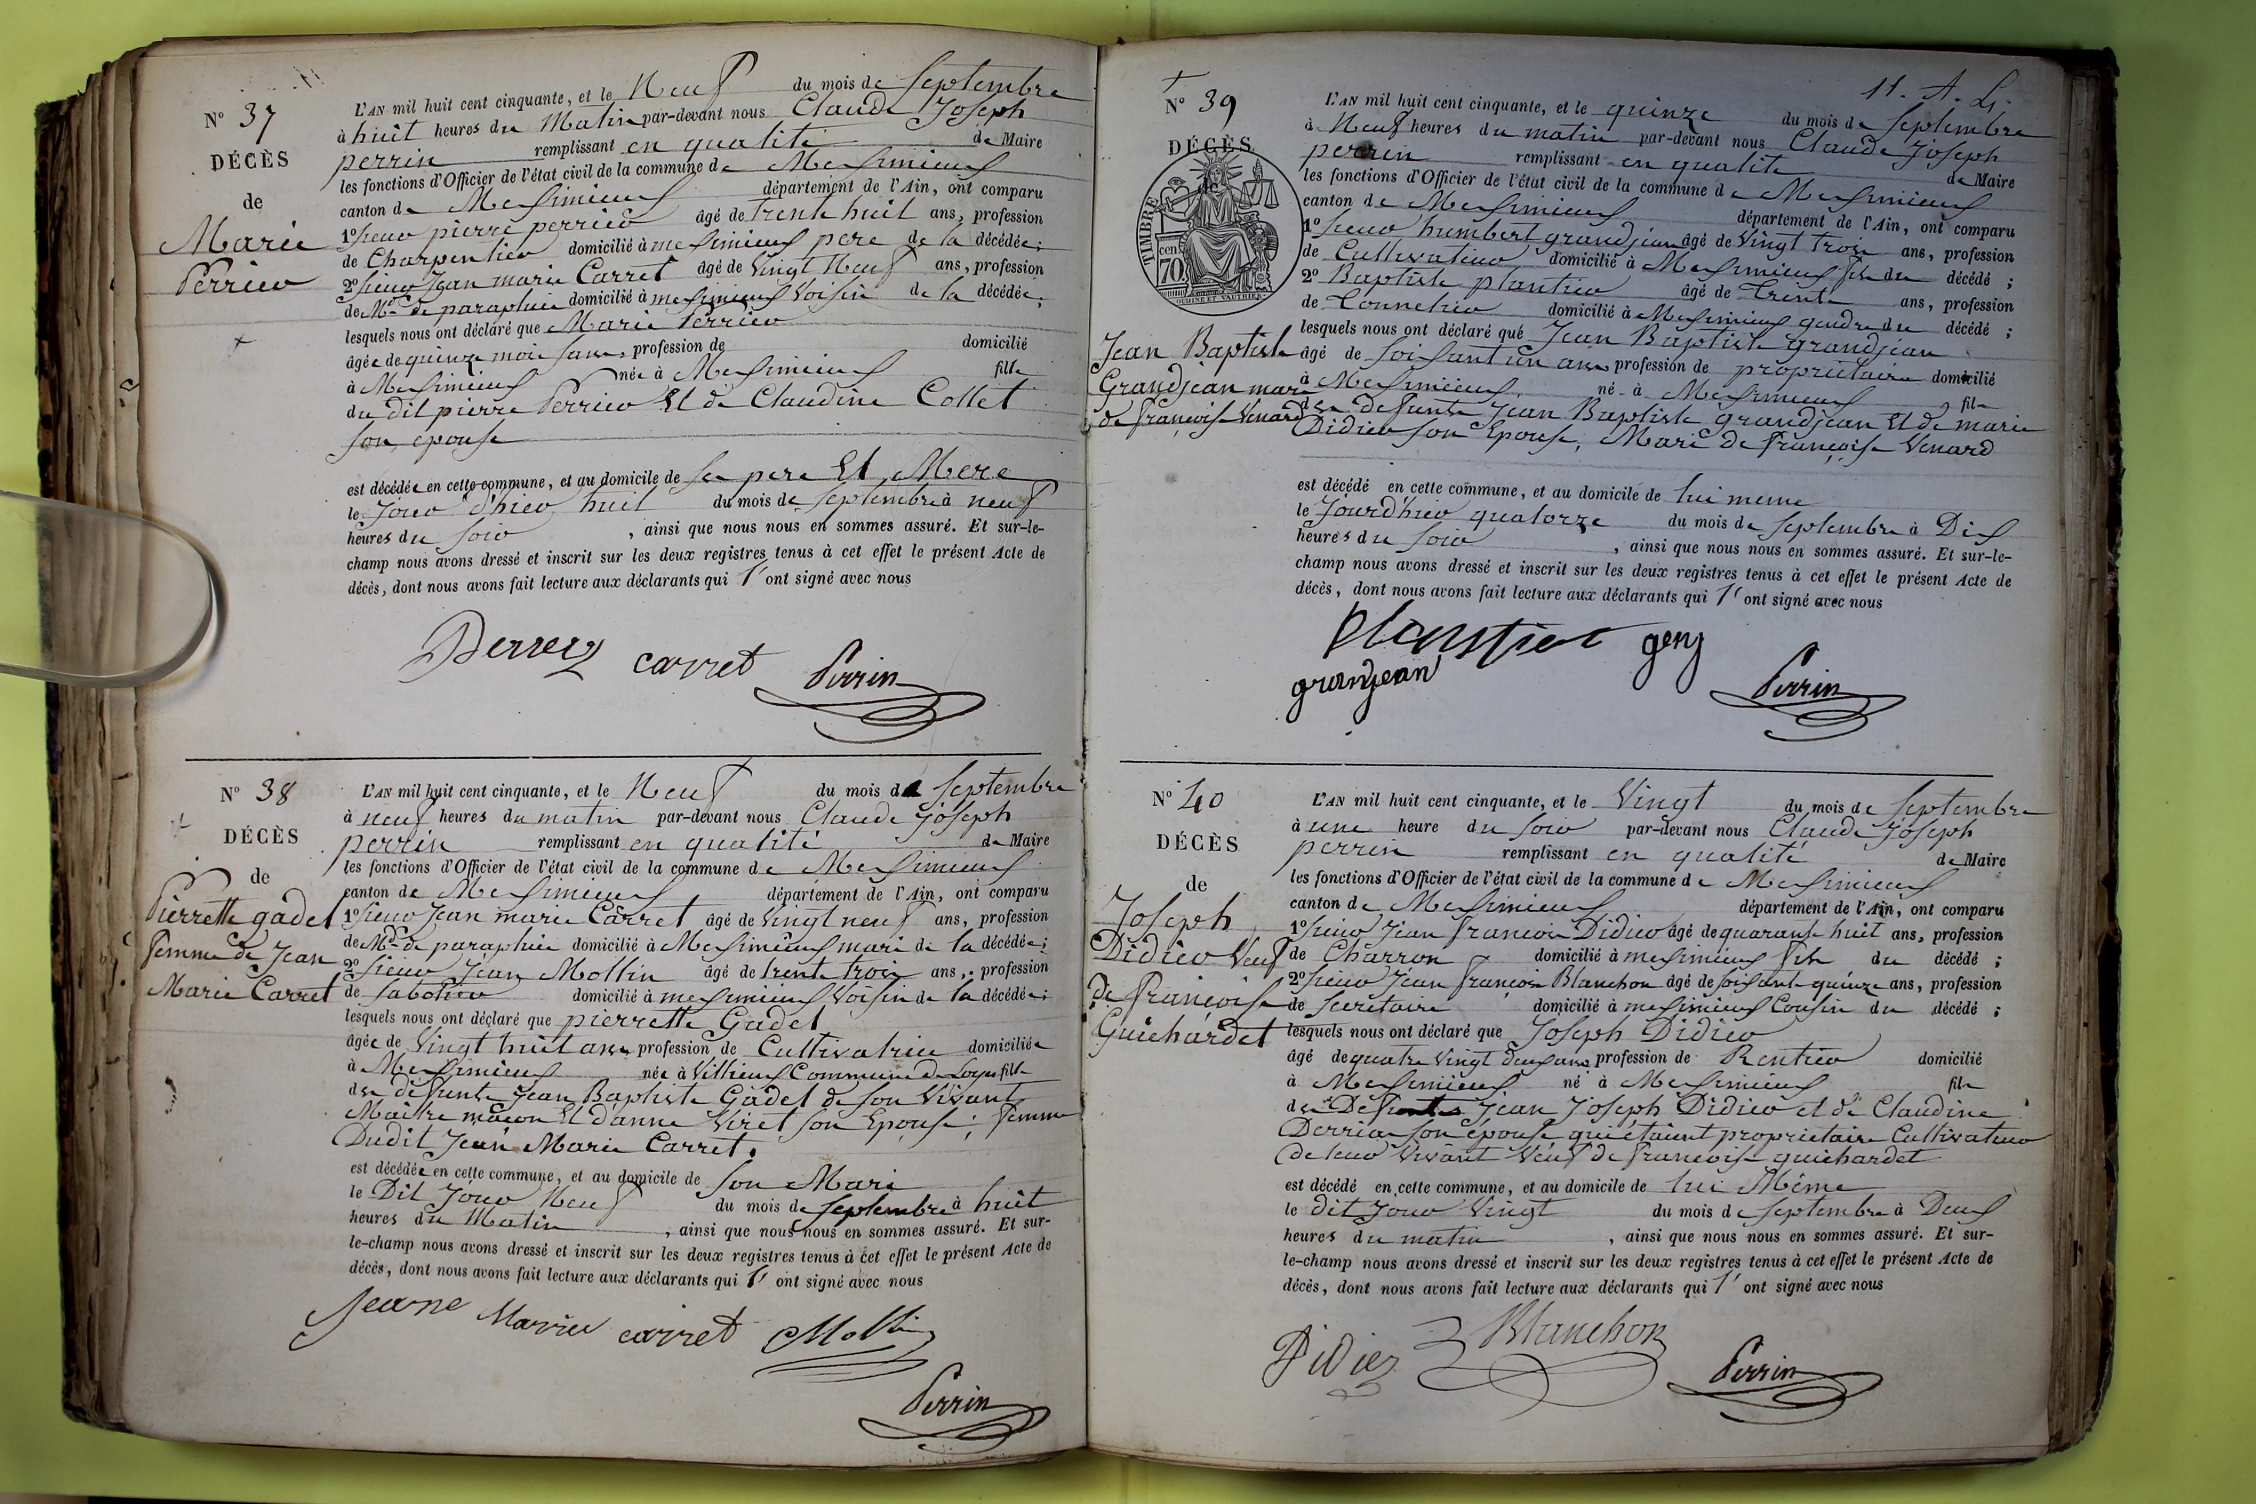 N° 37
DÉCÈS
de
Marie
Perrier
L'AN mil huit cent cinquante, et le Neuf du mois de septembre
à huit heures du Matin par-devant nous Claude Joseph
perrin remplissant en qualité de Maire
les fonctions d'Officier de l'état civil de la commune de Meximieux
canton de Meximieux département de l'Ain, ont comparu
1° sieur pierre perrier âgé de trente huit ans, profession
de Charpentier domicilié à meximieux pere de la décédée;
2° sieur Jean marie Carret âgé de Vingt Neuf ans, profession
de Md de parapluie domicilié à meximieux Voisin de la décédée;
lesquels nous ont déclaré que Marie Perrier
âgée de quinze mois sans profession de domicilié
à Meximieux née à Meximieux fille
du dit pierre Perrier Et de Claudine Collet
son epouse
est décédée en cette commune, et au domicile de ses pere Et Mere
le Jour d'hier huit du mois de septembre à neuf
heures du soir, ainsi que nous nous en sommes assuré. Et sur-le-
champ nous avons dressé et inscrit sur les deux registres tenus à cet effet le présent Acte de
décès, dont nous avons fait lecture aux déclarants qui l' ont signé avec nous
carret Perrin
N° 38
DÉCÈS
de
Pierrette gadel
femme de Jean
Marie Carret
L'AN mil huit cent cinquante, et le Neuf du mois de Septembre
à neuf heures du matin par-devant nous Claude Joseph
perrin remplissant en qualité de Maire
les fonctions d'Officier de l'état civil de la commune de Meximieux
canton de Meximieux département de l'Ain, ont comparu
1° sieur Jean marie Carret âgé de Vingt neuf ans, profession
de Md de parapluie domicilié à Meximieux mari de la décédée;
2° sieur Jean Mollin âgé de trente trois ans, profession
de sabotier domicilié à meximieux Voisin de la décédée;
lesquels nous ont déclaré que pierrette Gadel
âgée de Vingt huit ans profession de Cultivatrice domiciliée
à Meximieux née à Villieux Commune de Loyes fille
de defunts Jean Baptiste Gadel de son Vivant
Maitre maçon Et d'anne Viret son Epouse; femme
Dudit Jean Marie Carret.
est décédée en cette commune, et au domicile de son Mari
le Dit Jour Neuf du mois de septembre à huit
heures du Matin, ainsi que nous nous en sommes assuré. Et sur-
le-champ nous avons dressé et inscrit sur les deux registres tenus à cet effet le présent Acte de
décès, dont nous avons fait lecture aux déclarants qui l' ont signé avec nous
Jeane Marie carret Mollin
Perrin
11. A. L.
N° 39
DÉCÈS
de
TIMBRE
70 cen
Jean Baptiste
Grandjean mari
de françoise Venard
L'AN mil huit cent cinquante, et le quinze du mois de septembre
à Neuf heures du matin par-devant nous Claude Joseph
perrin remplissant en qualite de Maire
les fonctions d'Officier de l'état civil de la commune de Meximieux
canton de Meximieux département de l'Ain, ont comparu
1° sieur humbert grandjean âgé de Vingt trois ans, profession
de Cultivateur domicilié à Meximieux fils du décédé;
2° Baptiste plantier âgé de Trente ans, profession
de Tonnelier domicilié à Meximieux gendre du décédé;
lesquels nous ont déclaré que Jean Baptiste grandjean
âgé de soixant un ans profession de propriétaire domicilié
à Meximieux né à Meximieux fils
de defunts Jean Baptiste grandjean Et de marie
Didier son Epouse, Mari de françoise Venard
est décédé en cette commune, et au domicile de lui meme
le Jour d'hier quatorze du mois de septembre à Dix
heures du soir, ainsi que nous nous en sommes assuré. Et sur-le-
champ nous avons dressé et inscrit sur les deux registres tenus à cet effet le présent Acte de
décès, dont nous avons fait lecture aux déclarants qui l' ont signé avec nous
granjean Perrin
N° 40
DÉCÈS
de
Joseph
Didier Veuf
de françoise
Guichardet
L'AN mil huit cent cinquante, et le Vingt du mois de septembre
à une heure du soir par-devant nous Claude Joseph
perrin remplissant en qualité de Maire
les fonctions d'Officier de l'état civil de la commune de Meximieux
canton de Meximieux département de l'Ain, ont comparu
1° sieur Jean françois Didier âgé de quarante huit ans, profession
de Charron domicilié à meximieux fils du décédé;
2° sieur Jean françois Blanchon âgé de soixante quinze ans, profession
de secretaire domicilié à meximieux Cousin du décédé;
lesquels nous ont déclaré que Joseph Didier
âgé de quatre vingt deux ans profession de Rentier domicilié
à Meximieux né à Meximieux fils
de Defunts Jean Joseph Didier et de Claudine
Derriaz son épouse qui étaient proprietaire Cultivateur
de leur Vivant Veuf de francoise guichardet
est décédé en cette commune, et au domicile de lui Même
le dit Jour Vingt du mois de septembre à Deux
heures du matin, ainsi que nous nous en sommes assuré. Et sur-
le-champ nous avons dressé et inscrit sur les deux registres tenus à cet effet le présent Acte de
décès, dont nous avons fait lecture aux déclarants qui l' ont signé avec nous
Didier Blanchon Perrin